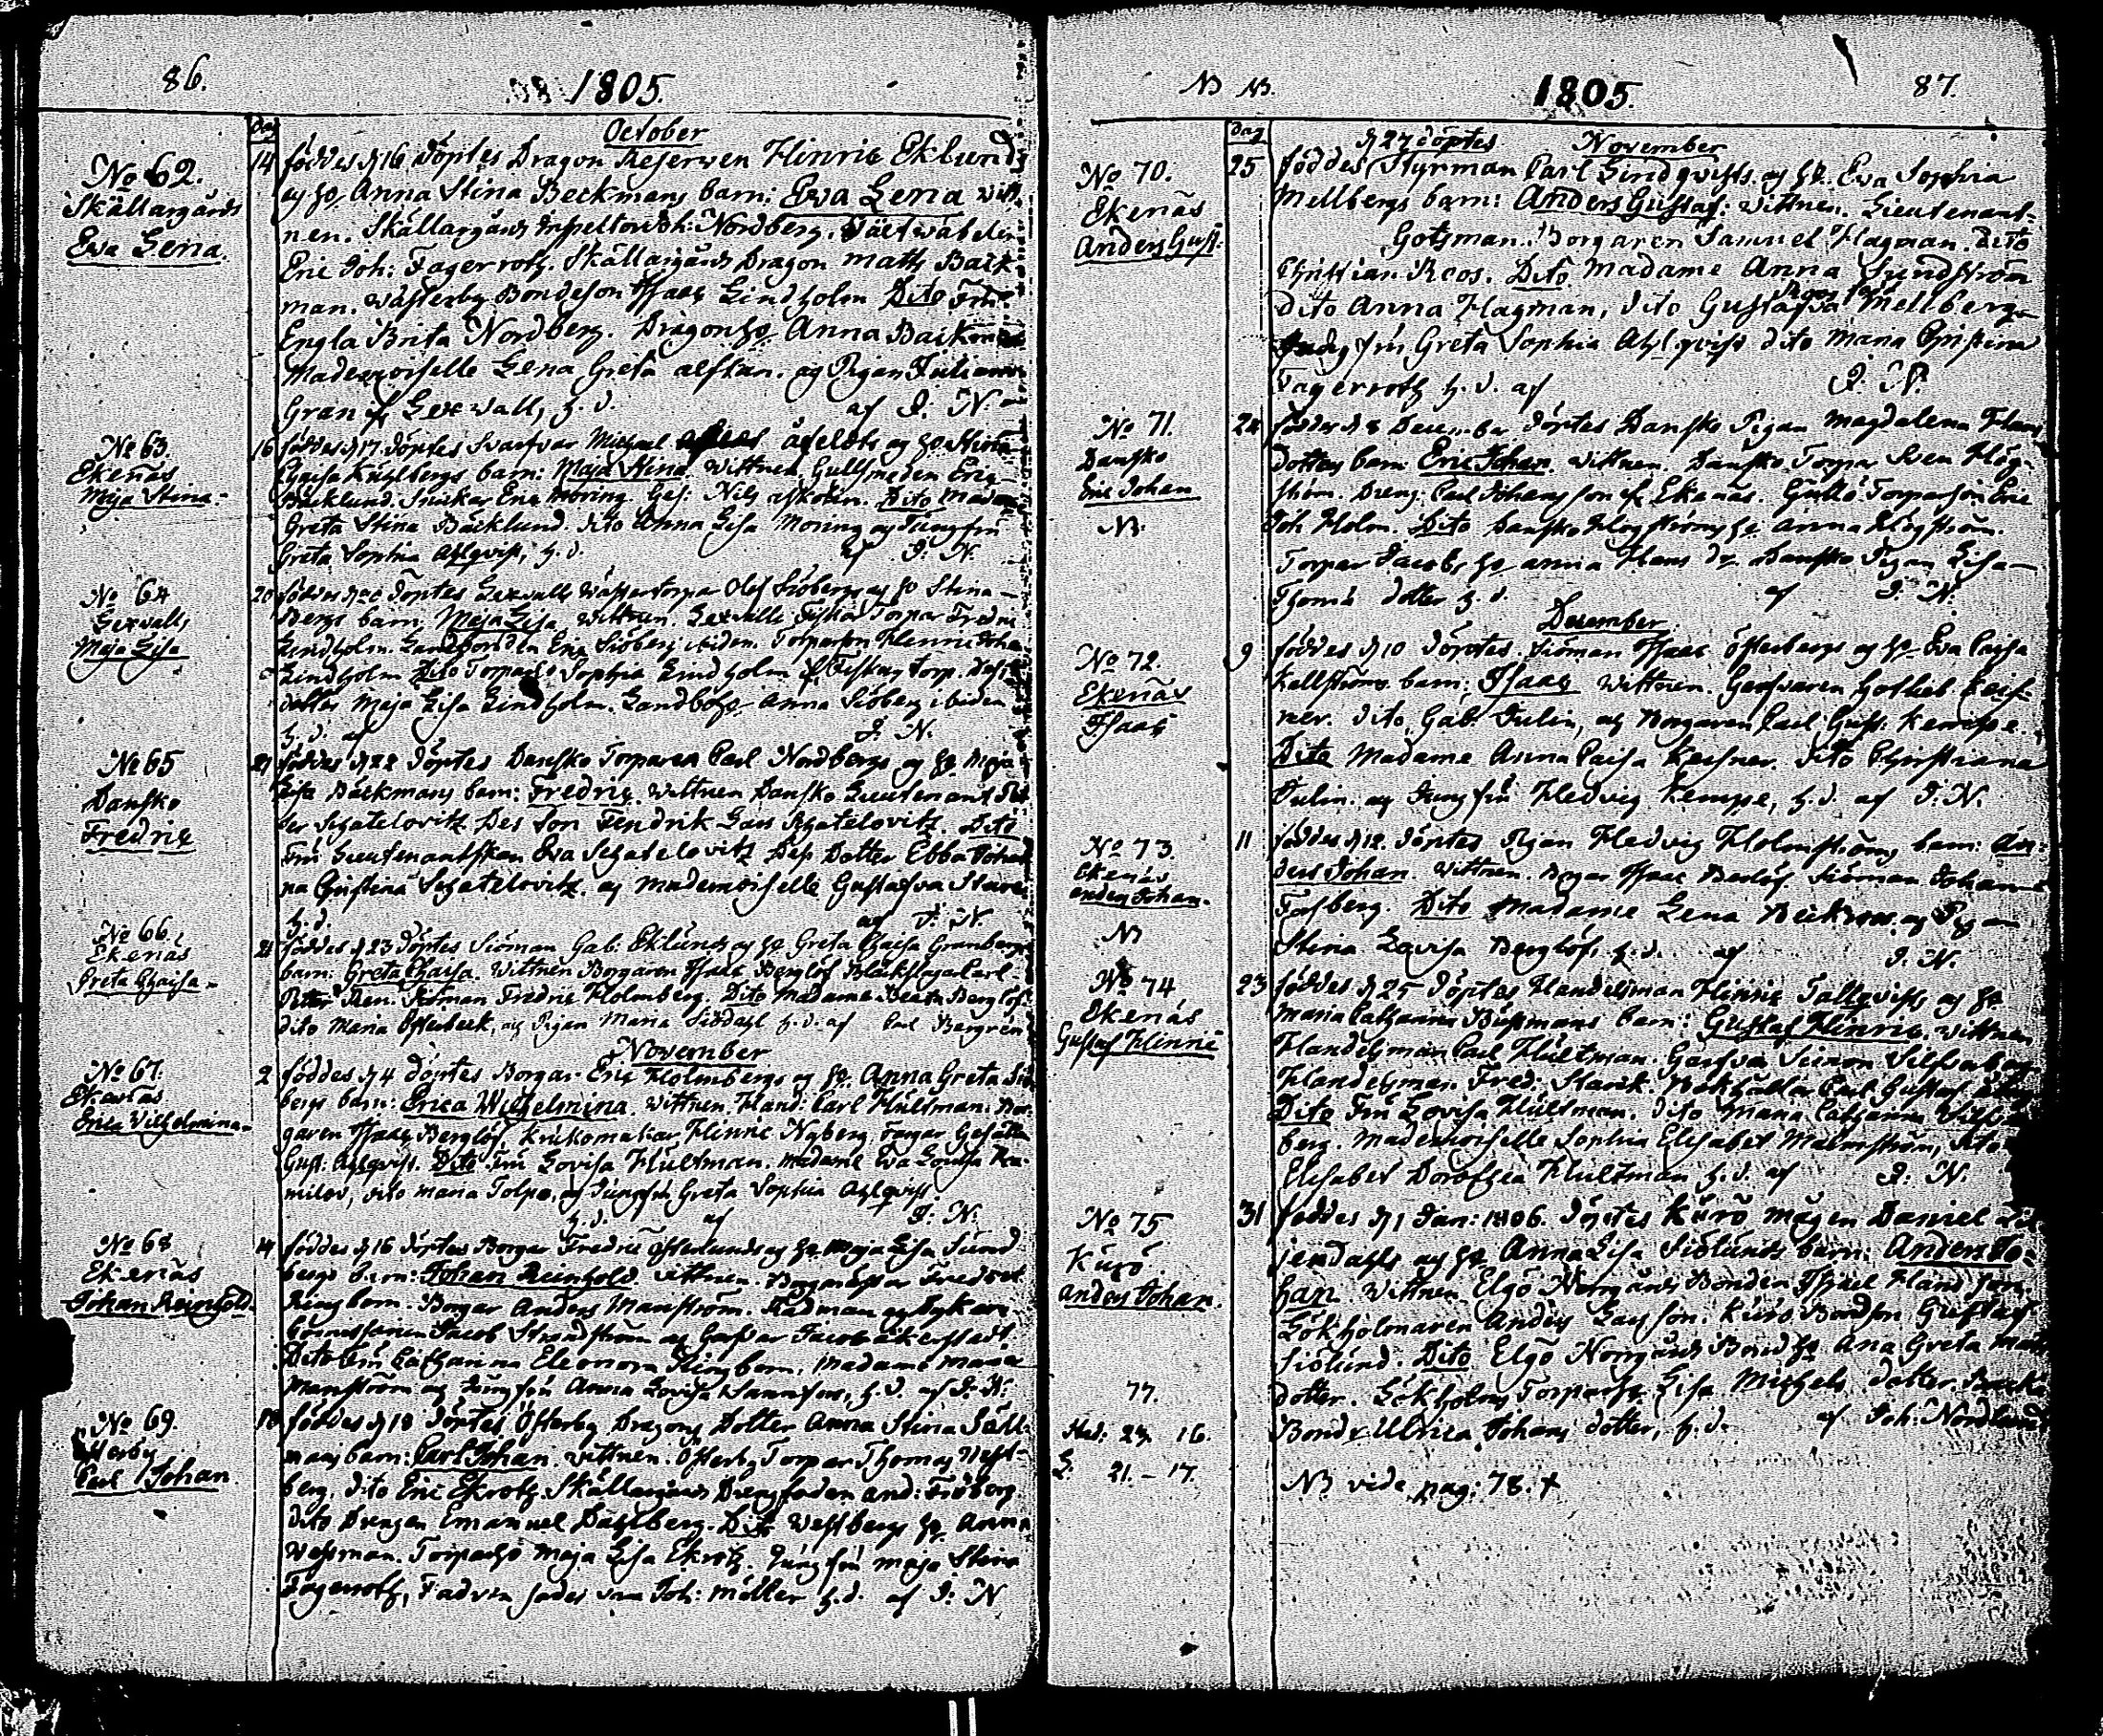 86.
1805.
October
dag
No 62.
Skällargårds
Ewa Lena.
14 föddes d 16 döptes Dragon Reserven Hinric Eklunds
og ho Anna Stina Beckmans barn: Ewa Lena witt-
nen. Skällargårds Inspektor Joh: Nordberg.
Eric Joh: Fagerroth. Skällargårds Dragon Matts Back-
man. Wästerby Bondeson Isaac Lindholm Dito Fru
Engla Brita Nordberg. Dragon ho Anna Backman
Mademoiselle Lena Greta alftan. og Pigan Juliana
Gran fr Gexvall, h. d. af J. N.
No 63.
Ekenäs
Maja Stina
16 föddes d 17 döptes Svarfvar Michael og ho Stina
Cajsa Kuhlbergs barn: Maja Stina. Wittnen Gullsmeden Eric
Bäcklund. Snickar Eric Moring. Ges: Nils Dito Madam
Greta Stina Bäcklund. dito Anna Lisa Moring og Jungfru
Greta Sophia Ahlqvist, h. d. af J. N.
No 64
Gexvalls
Maja Lisa
20 föddes d döptes Gexvalls Wästertorpar Olof Siöbergs og ho Stina
Bergs barn. Maja Lisa. Wittnen. Gexvalls Fiskar Torpar Fredric
Lindholm. Landbonden Eric Siöberg ibidem. Torparson Henric Joha
Lindholm Dito Torpar ho Sophia Lindholm fr Fiskars torp. dess
dotter Maja Lisa Lindholm. Landbo ho Anna Siöberg ibidem
h. d. af J. N.
No 65
Dansko
Fredric
21 föddes d 22 döptes Dansko Torparen Carl Nordbergs og ho Maja
Lisa Bäckmans barn: Fredric. Wittnen Dansko Lieutenant
Schatelovitz Des Son Fendrik Lars Schatelovitz. Dito
Fru Lieutenantskan Eva Schatelovitz Dess Dotter Ebba Johan-
na Christina Schatelovitz. og Mademoiselle Gustafva Stare
h. d. af J. N.
No 66.
Ekenäs
Greta Chaisa
21 föddes d 23 döptes Siöman Gab: Eklunds og ho Greta Chaisa Granbergs
barn: Greta Chaisa. Wittnen Borgaren Isaac Berglöf Bläckslagar Carl
Petter Ren. Siöman Fredric Holmberg. Dito Madame Beata Berglöf.
dito Maria Österbeck, og Pigan Maria Siödahl h. d. af Carl Bergren
November
No 67.
Ekenäs
Erica Vilhelmina
2 föddes d 4 döptes Borgar Eric Holmbergs og ho Anna Greta Siö
bergs barn: Erica Wilhelmina. Wittnen. Hand: Carl Hultman. Bor-
garen Isaac Berglöf, Krukomakar Hinric Nyberg. Fergar Gesällen
Gust: Ahlqvist. Dito Fru Lovisa Hultman. Madame Eva Lovisa
milov, dito Maria Tolpo, og Jungfru Greta Sophia Ahlqvist
h. d. af J. N.
No 68
Ekenäs
Johan Reinhold
14 föddes d 16 döptes Borgar Fredric Österlunds og ho Maja Lisa Sund
bergs barn: Johan Reinhold Wittnen. Borgmästar Fredric
Ringbom. Borgar Anders Manström. Rådman og
Jacob Strandström og Garfvar Jacob Åkerstedt
Dito Fru Catharina Eleonora Ringbom. Madame Maria
Manström og Jungfru Anna Lovisa h. d. af J. N.
No 69.
Österby
Carl Johan
18 föddes d 18 döptes Österby Dragons Dotter Anna Stina Säll
mans barn: Carl Johan. Wittnen. Österby Torpar Thomas West-
berg. dito Eric Ekroth. Skällargårds Drengfaden And: Friberg
dito Drengen Emanuel Dahlberg. Dito Westbergs ho Anna
Wessman. Torpar ho Maja Lisa Ekroth. Jungfru Maja Stina
Fagerroth, Fadren sades vara Joh: Möller h. d. af J. N
NB NB.
1805.
87.
dag
d 27 döptes November
No 70.
Ekenäs
Anders Gust:
25 föddes Styrman Carl Lindqvists og ho. Eva Sophia
Mellbergs barn: Anders Gustaf. Wittnen. Lieutenant
Gotsman. Borgaren Samuel Hagman. dito
Christian Roos. Dito Madame Anna Sundström
dito Anna Hagman, dito Gustafva Mellberg
Jungfru Greta Sophia Ahlqvist dito Maria Christina
Fagerroth h. d. af J. N.
No 71.
Dansko
Eric Johan
NB.
24 föddes d 8 December döptes Dansko Pigan Magdalena Hans
dotters barn Eric Johan. Wittnen. Dansko Torpar Sven Hög-
ström. Dreng: Carl Johansson fr Ekenäs. Gullö Torparson Eric
Joh Holm. Dito Dansko Högströms ho Anna Högström.
Torpar Jacobs ho Anna Hans dr. Dansko Pigan Lisa
Thomas dotter h. d. af J. N.
December
No 72.
Ekenäs
Isaac
9 föddes d 10 döptes. Siöman Isaac Österbergs og ho Eva Caisa
Kallströms barn: Isaac Wittnen. Garfvaren Gotlieb Keis-
ner. dito Gab: Julin, og Borgaren Carl Gust: Kempe.
Dito Madame Anna Caisa Keisner. dito Christiana
Julin. og Jungfru Hedvig Kempe, h. d. af J. N.
No 73.
Ekenäs
Anders Johan.
NB
11 föddes d 12. döptes Pigan Hedvig Holmströms barn: An-
ders Johan. Wittnen. Borgar Isaac Berglöf. Siöman Johan
Forsberg. Dito Madame Lena og Pigan
Stina Lovisa Berglöf, h. d. af J. N.
No 74
Ekenäs
Gustaf Hinric
23 föddes d 25 döptes Handelsman Hinric Tallqvists og ho
Maria Catharina Bussmans barn: Gustaf Hinric. Wittnen
Handelsman Carl Hultman. Garfvar Simon
Handelsman Fred: Starck. Bokhållar Carl Gustaf
Dito Fru Lovisa Hultman. dito Maria Catharina
berg. Mademoiselle Sophia Elisabet Malmström, dito
Elisabet Dorothea Hultman h. d. af J. N.
No 75
Kurö
Anders Johan.
31 föddes d 1 Jan: 1806. döptes Kurö mågen Daniel Lil
jendahls og ho Anna Lisa Siölunds barn: Anders Jo-
han. Wittnen Elgö Norrgårds Bonden Hand son
Lökholmaren Anders Lars son. Kurö Bondson Gustaf
Siölund. Dito Elgö Norrgårds Bond ho Ana Greta Mats
dotter. Lökholms Torpar ho Lisa Michels dotter.
Bond Ulrica Johans dotter, h. d. af Joh: Nordlund
77.
24 16.
21. – 17.
NB vide pag: 78. +